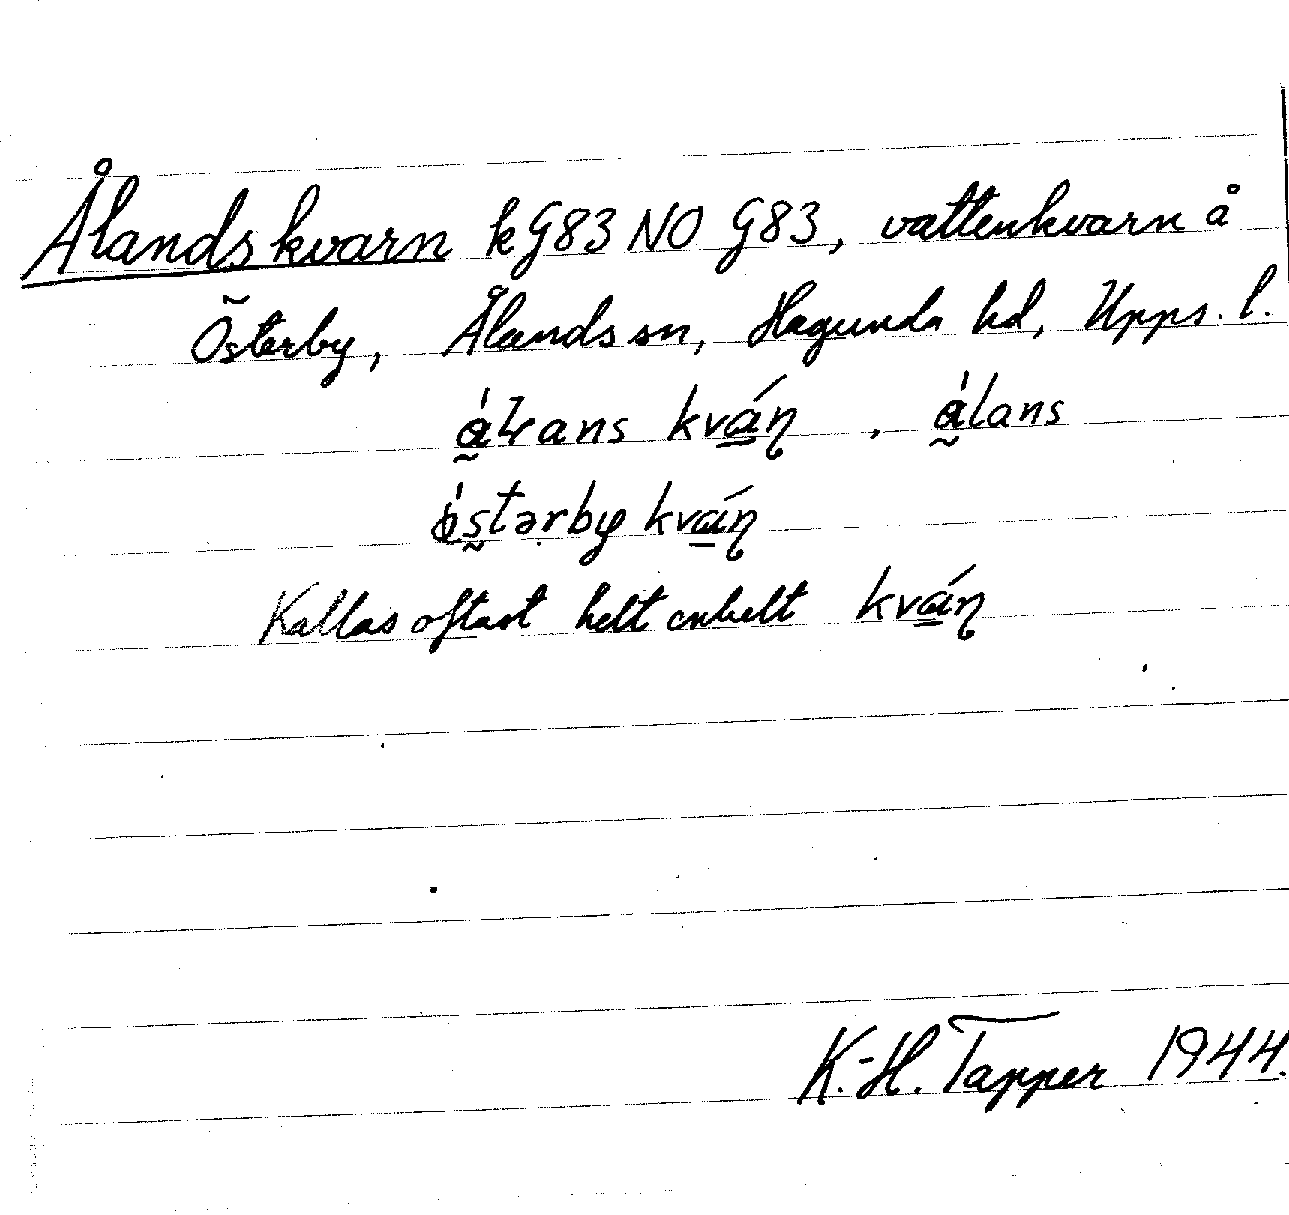 Ålandskvarn kG83 NO G83, vattenkvarn å
Österby, Ålands sn, Hagunda hd, Upps. l.
kván, álans
kván
Kallas oftast helt enkelt kván
K.-H. Tapper 1944.